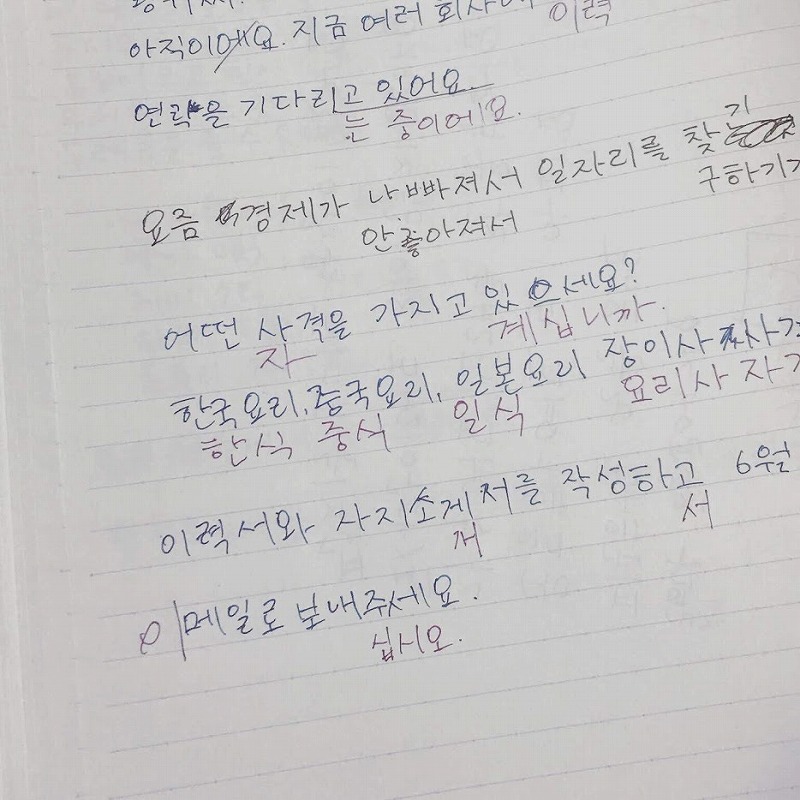 아직이에요. 지금 여러 회사에
이력
연락을 기다리고 있어요.
는 중이에요.
요즘 경제가 나빠져서 일자리를 찾기
안좋아져서 구하기가
어떤 사격을 가지고 있으세요?
자 계십니까.
한국요리, 중국요리, 일본요리 장이사 사격
한식 중식 일식 요리사 자격
이력서와 자지소게저를 작성하고 6월
개 서
이메일로 보내주세요.
십시오.